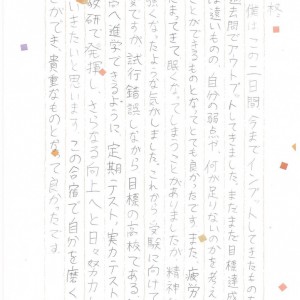 僕はこの二日間、今までインプットしてきたものを
過去問でアウトプットしてきました。まだまだ目標達成
は遠いものの、自分の弱点や、何が足りないのかを考え
ことができるものとなってとても良かったです。また、疲労
たまってきて眠くなってしまうことがありましたが、精神
強くなったような気がしました。これから、受験に向けて
変ですが、試行錯誤しながら目標の高校である
高へ進学できるように、定期テスト、実力テスト
教研で発揮し、さらなる向上へと日々努力し
いきたいと思います。この合宿で自分を磨く
とができ、貴重なものとなって良かったです。